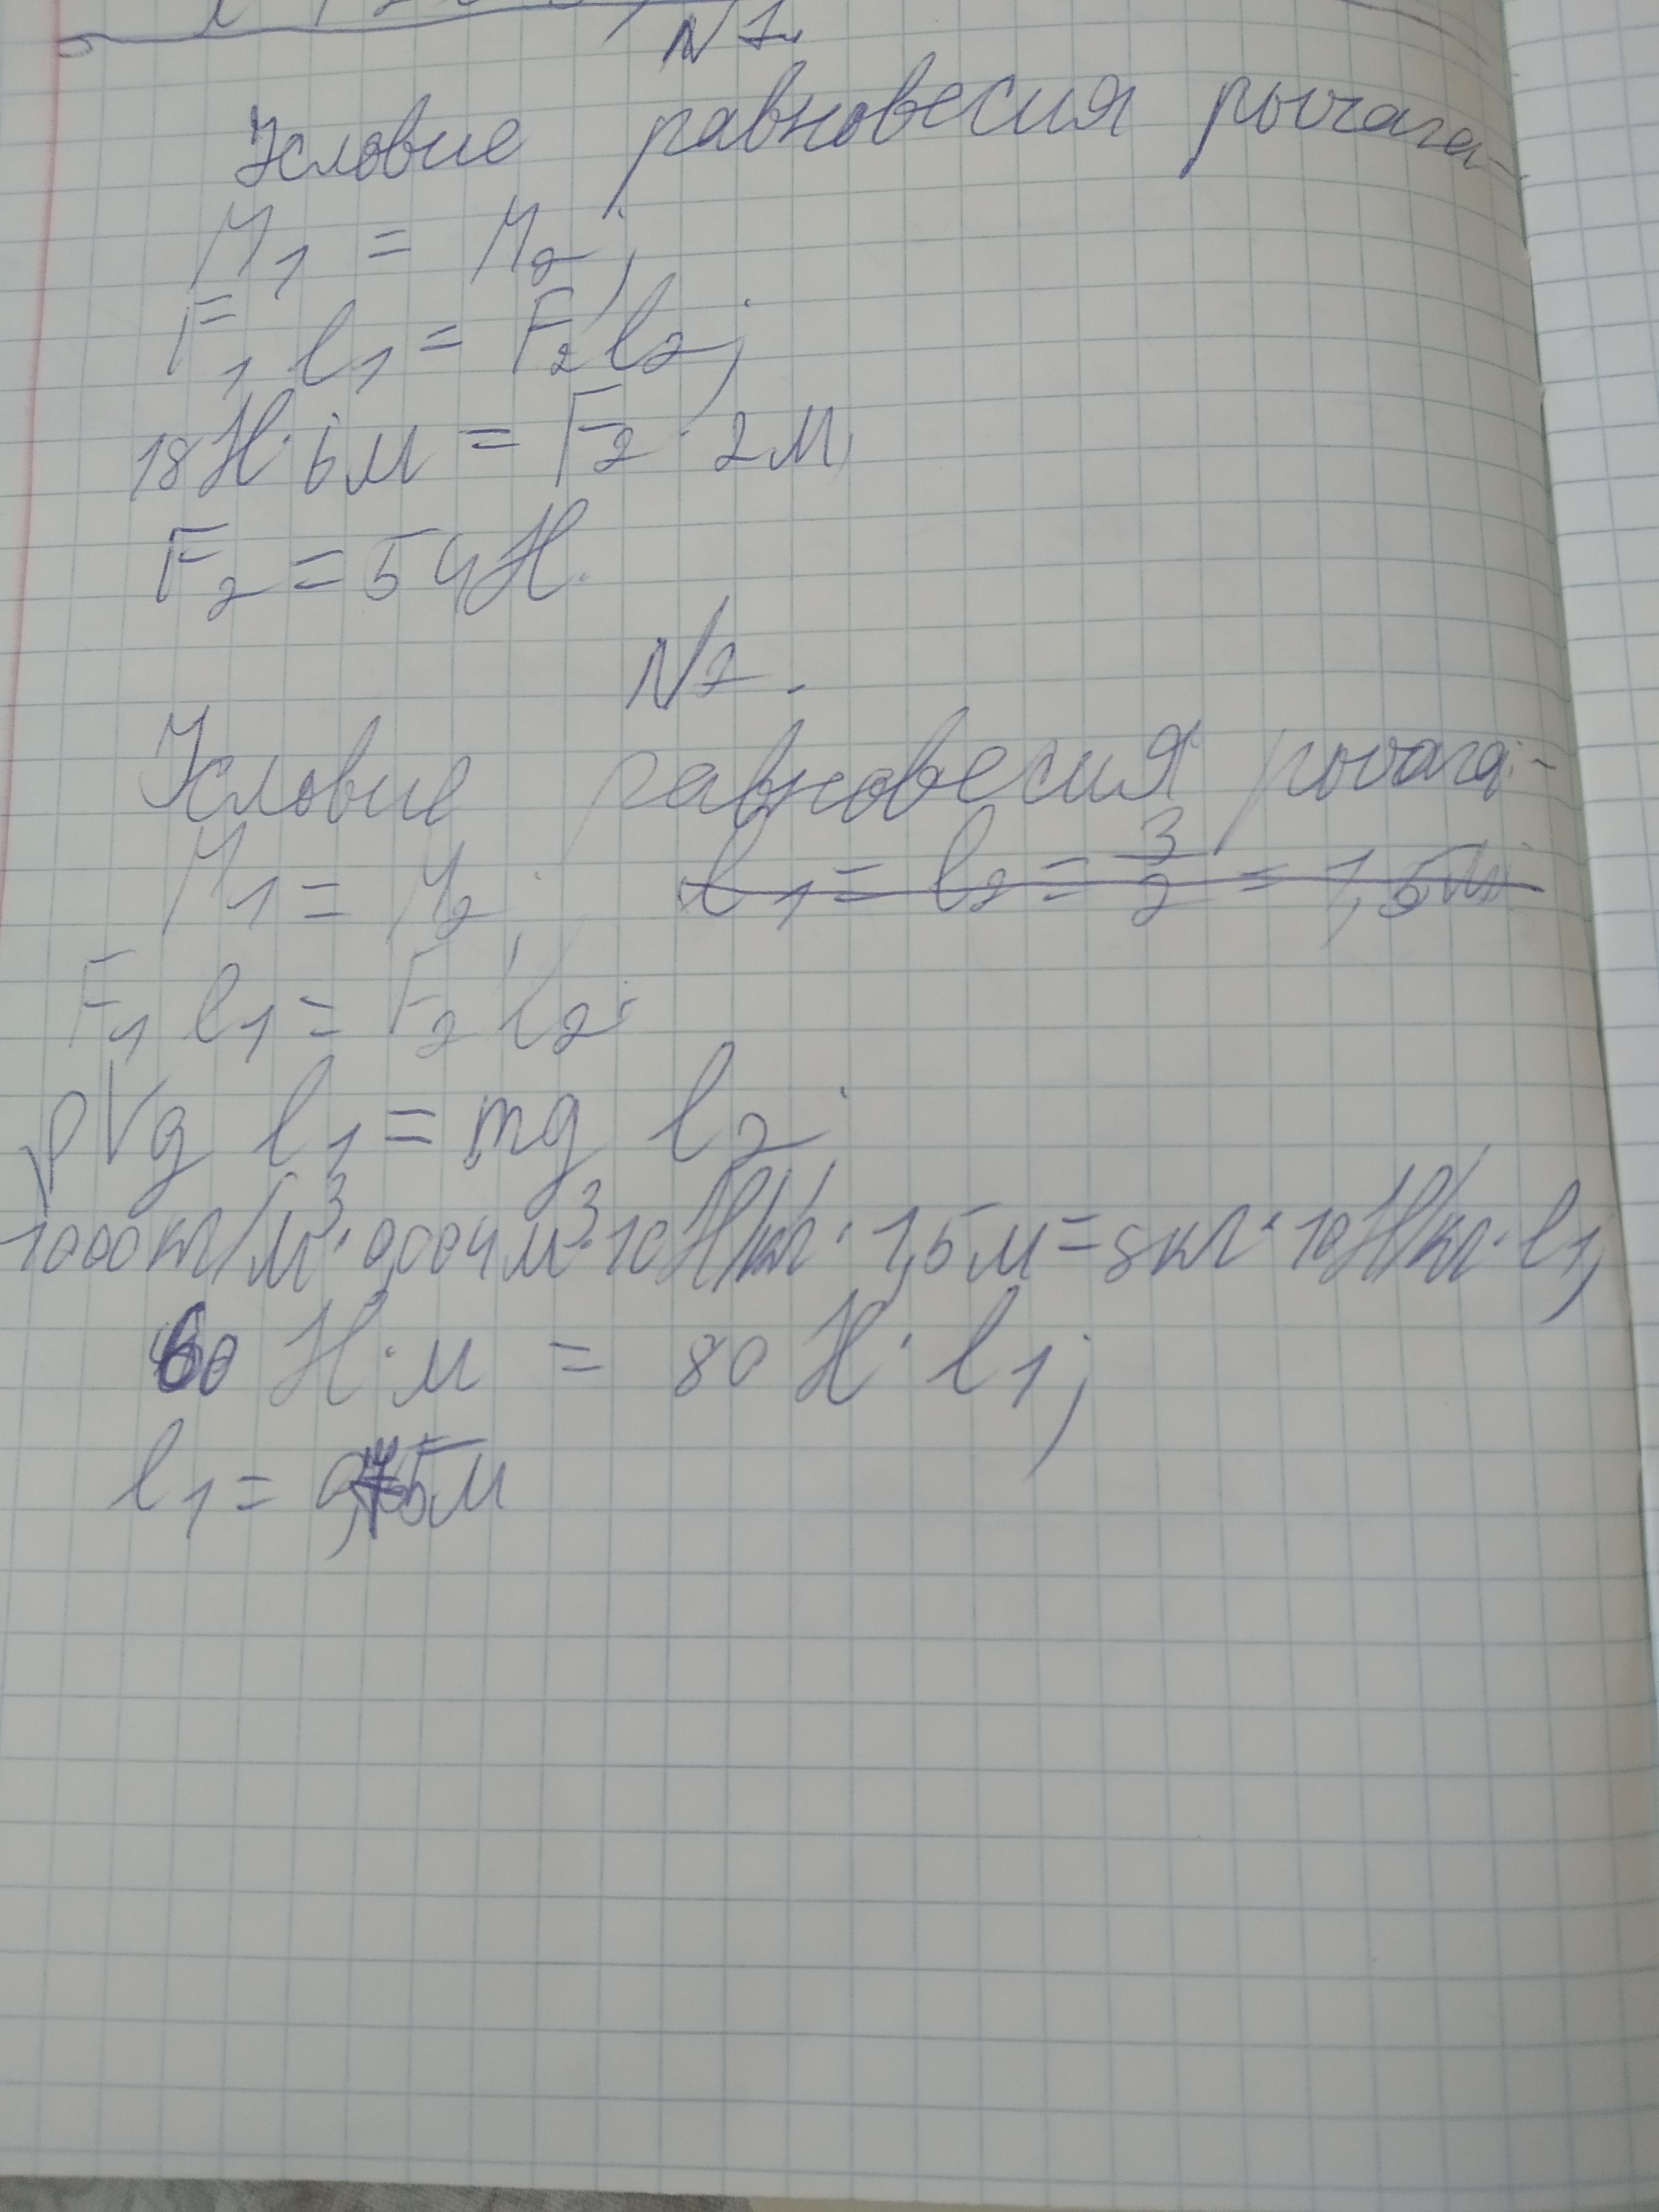 N 1.
Условие равновесия рычага-
M₁ = M₂;
F₁ l₁ = F₂ l₂;
18Н·6м = F₂·2м
F₂ = 54Н.
N2.
Условие равновесия рычага:-
M₁ = M₂; l₁ = l₂ = 3/2 = 1,5м
F₁ l₁ = F₂ l₂;
ρVg l₁ = mg l₂;
1000кг/м³·0,004м³·10Н/кг·1,5м=8кг·10Н/кг·l₁;
60 Н·м = 80 Н·l₁;
l₁ = 0,75м